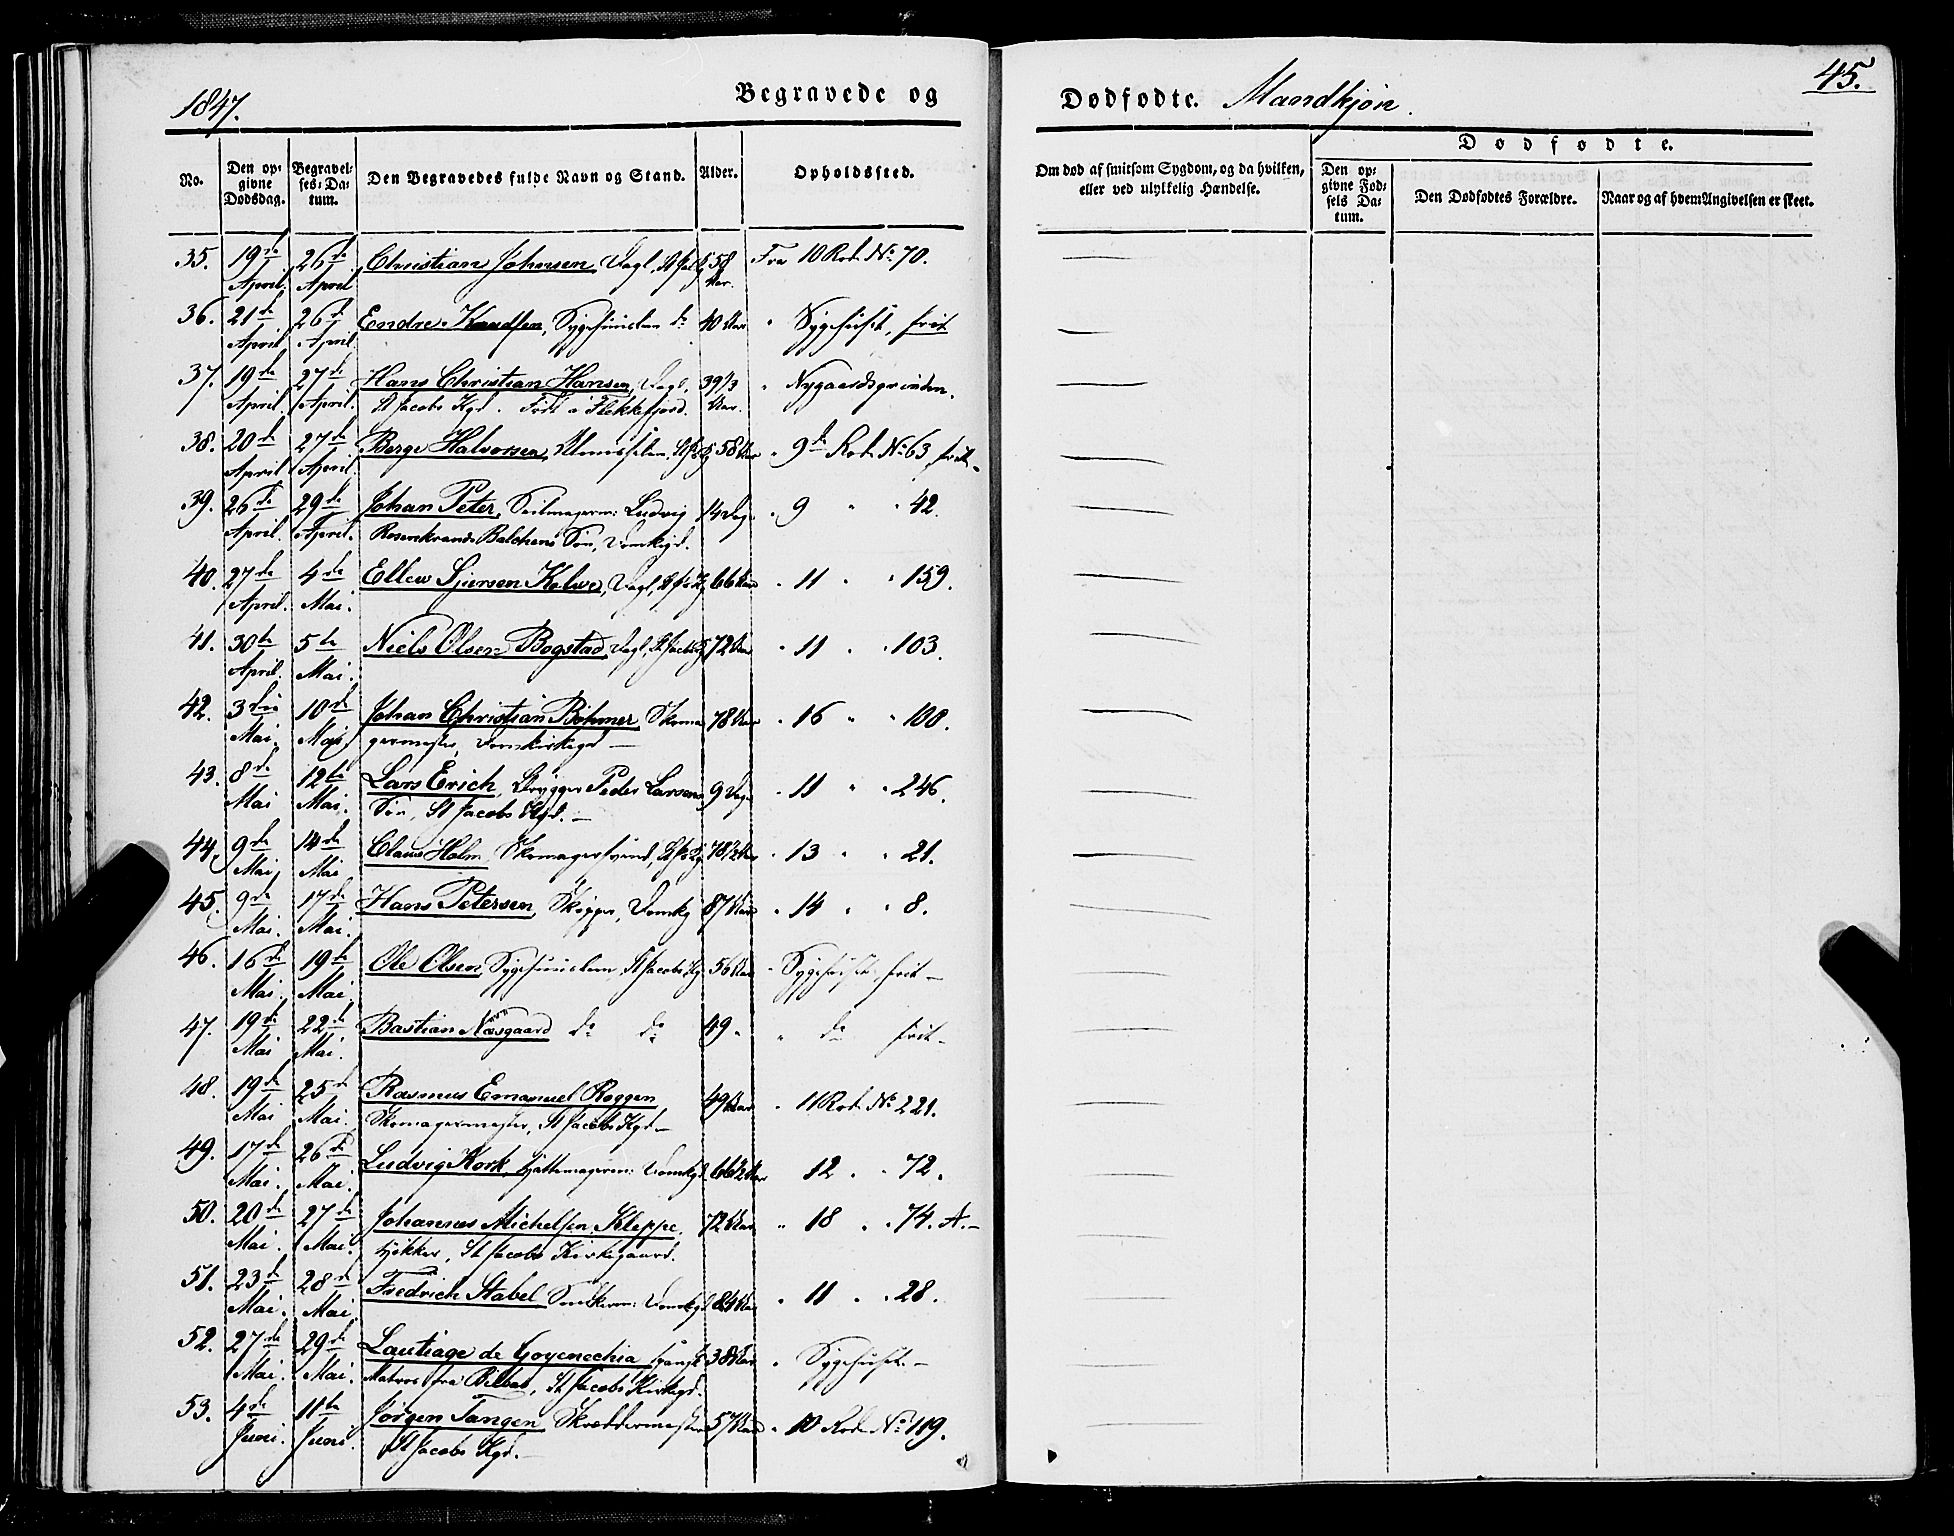 1847.
Begravede og
Dødfødte. Mandkjøn.
45.
No.
Den opgivne Dødsdag.
Begravelses-Datum.
Den Begravedes fulde Navn og Stand.
Alder.
Opholdssted.
Om død af smitsom Sygdom, og da hvilken, eller ved ulykkelig Hændelse.
Dødfødte.
Den opgivne Fødsels Datum.
Den Dødfødtes Forældre.
Naar og af hvem Angivelsen er skeet.
35. 19de 26de Christian Johnsen, Dagl, St 58 Fra 10 Rode No 70.
April. April Aar.
36. 21de 26de Endre Knudsen, do 40 Aar " Sygehuset, frit
April April
37. 19de 27de Hans Christian Hansen, Dagl. 39 1/3 " Nygaardsgrinden.
April. April. St Jacobs Kgd. Født i Flekkefjord. Aar.
38. 20de 27de Berge Halvorsen, 58 Aar " 9de Rode No 63 frit -
April April
39. 26de 29de Johan Peter, Seilmagerm: Ludvig 14 Dage " 9 " " 42.
April. April. Rosenkrands Balchens Søn, Domkgd.
40. 27de 4de Ellew Sjursen Kalve, Dagl, 66 Aar " 11 " " 159.
April. Mai.
41. 30te 5te Niels Olsen Bogstad, Dagl, St Jacobs 72 Aar " 11 " " 103.
April. Mai.
42. 3die 10de Johan Christian Böhmer Skoma 78 Aar " 16 " " 108.
Mai. Mai germester, Domkirkegd -
43. 8de 12te Lars Erich, Brygger Peder Larsens 9 Dage " 11 " " 246.
Mai Mai. Søn, St Jacobs Kgd. -
44. 9de 14de Claus Holm Skomagersvend, 78 1/2 Aar " 13 " " 21.
Mai Mai
45. 9de 17de Hans Petersen, Skipper, Domkg 87 Aar " 14 " " 8.
Mai. Mai.
46. 16de 19de Ole Olsen St Jacobs Kg 56 Aar " Sygehuset frit -
Mai. Mai.
47. 19de 22de Bastian Næsgaard do do 49 " " do frit -
Mai Mai.
48. 19de 25de Rasmus Emanuel Roggen 49 Aar " 11 Rode No 221.
Mai Mai. Skomagermester, St Jacobs Kgd -
49. 17de 26de Ludvig Kork, Hattemagerm: Domkgd 66 1/2 Aar 12 " " 72.
Mai. Mai.
50. 20de 27de Johannes Michelsen Kleppe, 72 Aar " 18 " " 74. A. -
Mai. Mai. Høkker, St Jacobs Kirkegaard.
51. 23de 28de Fredrich Stabel Domkgd 84 Aar " 11 " " 28.
Mai. Mai
52. 27de 29de Lautiage de Goyenechia spansk 38 Aar " Sygehuset. -
Mai. Mai. Matros fra Bilbao, St Jacobs Kirkegd.
53. 4de 11te Jørgen Tangen Skreddermester 57 Aar " 10 Rode No 119.
Juni. Juni. St Jacobs Kgd. -